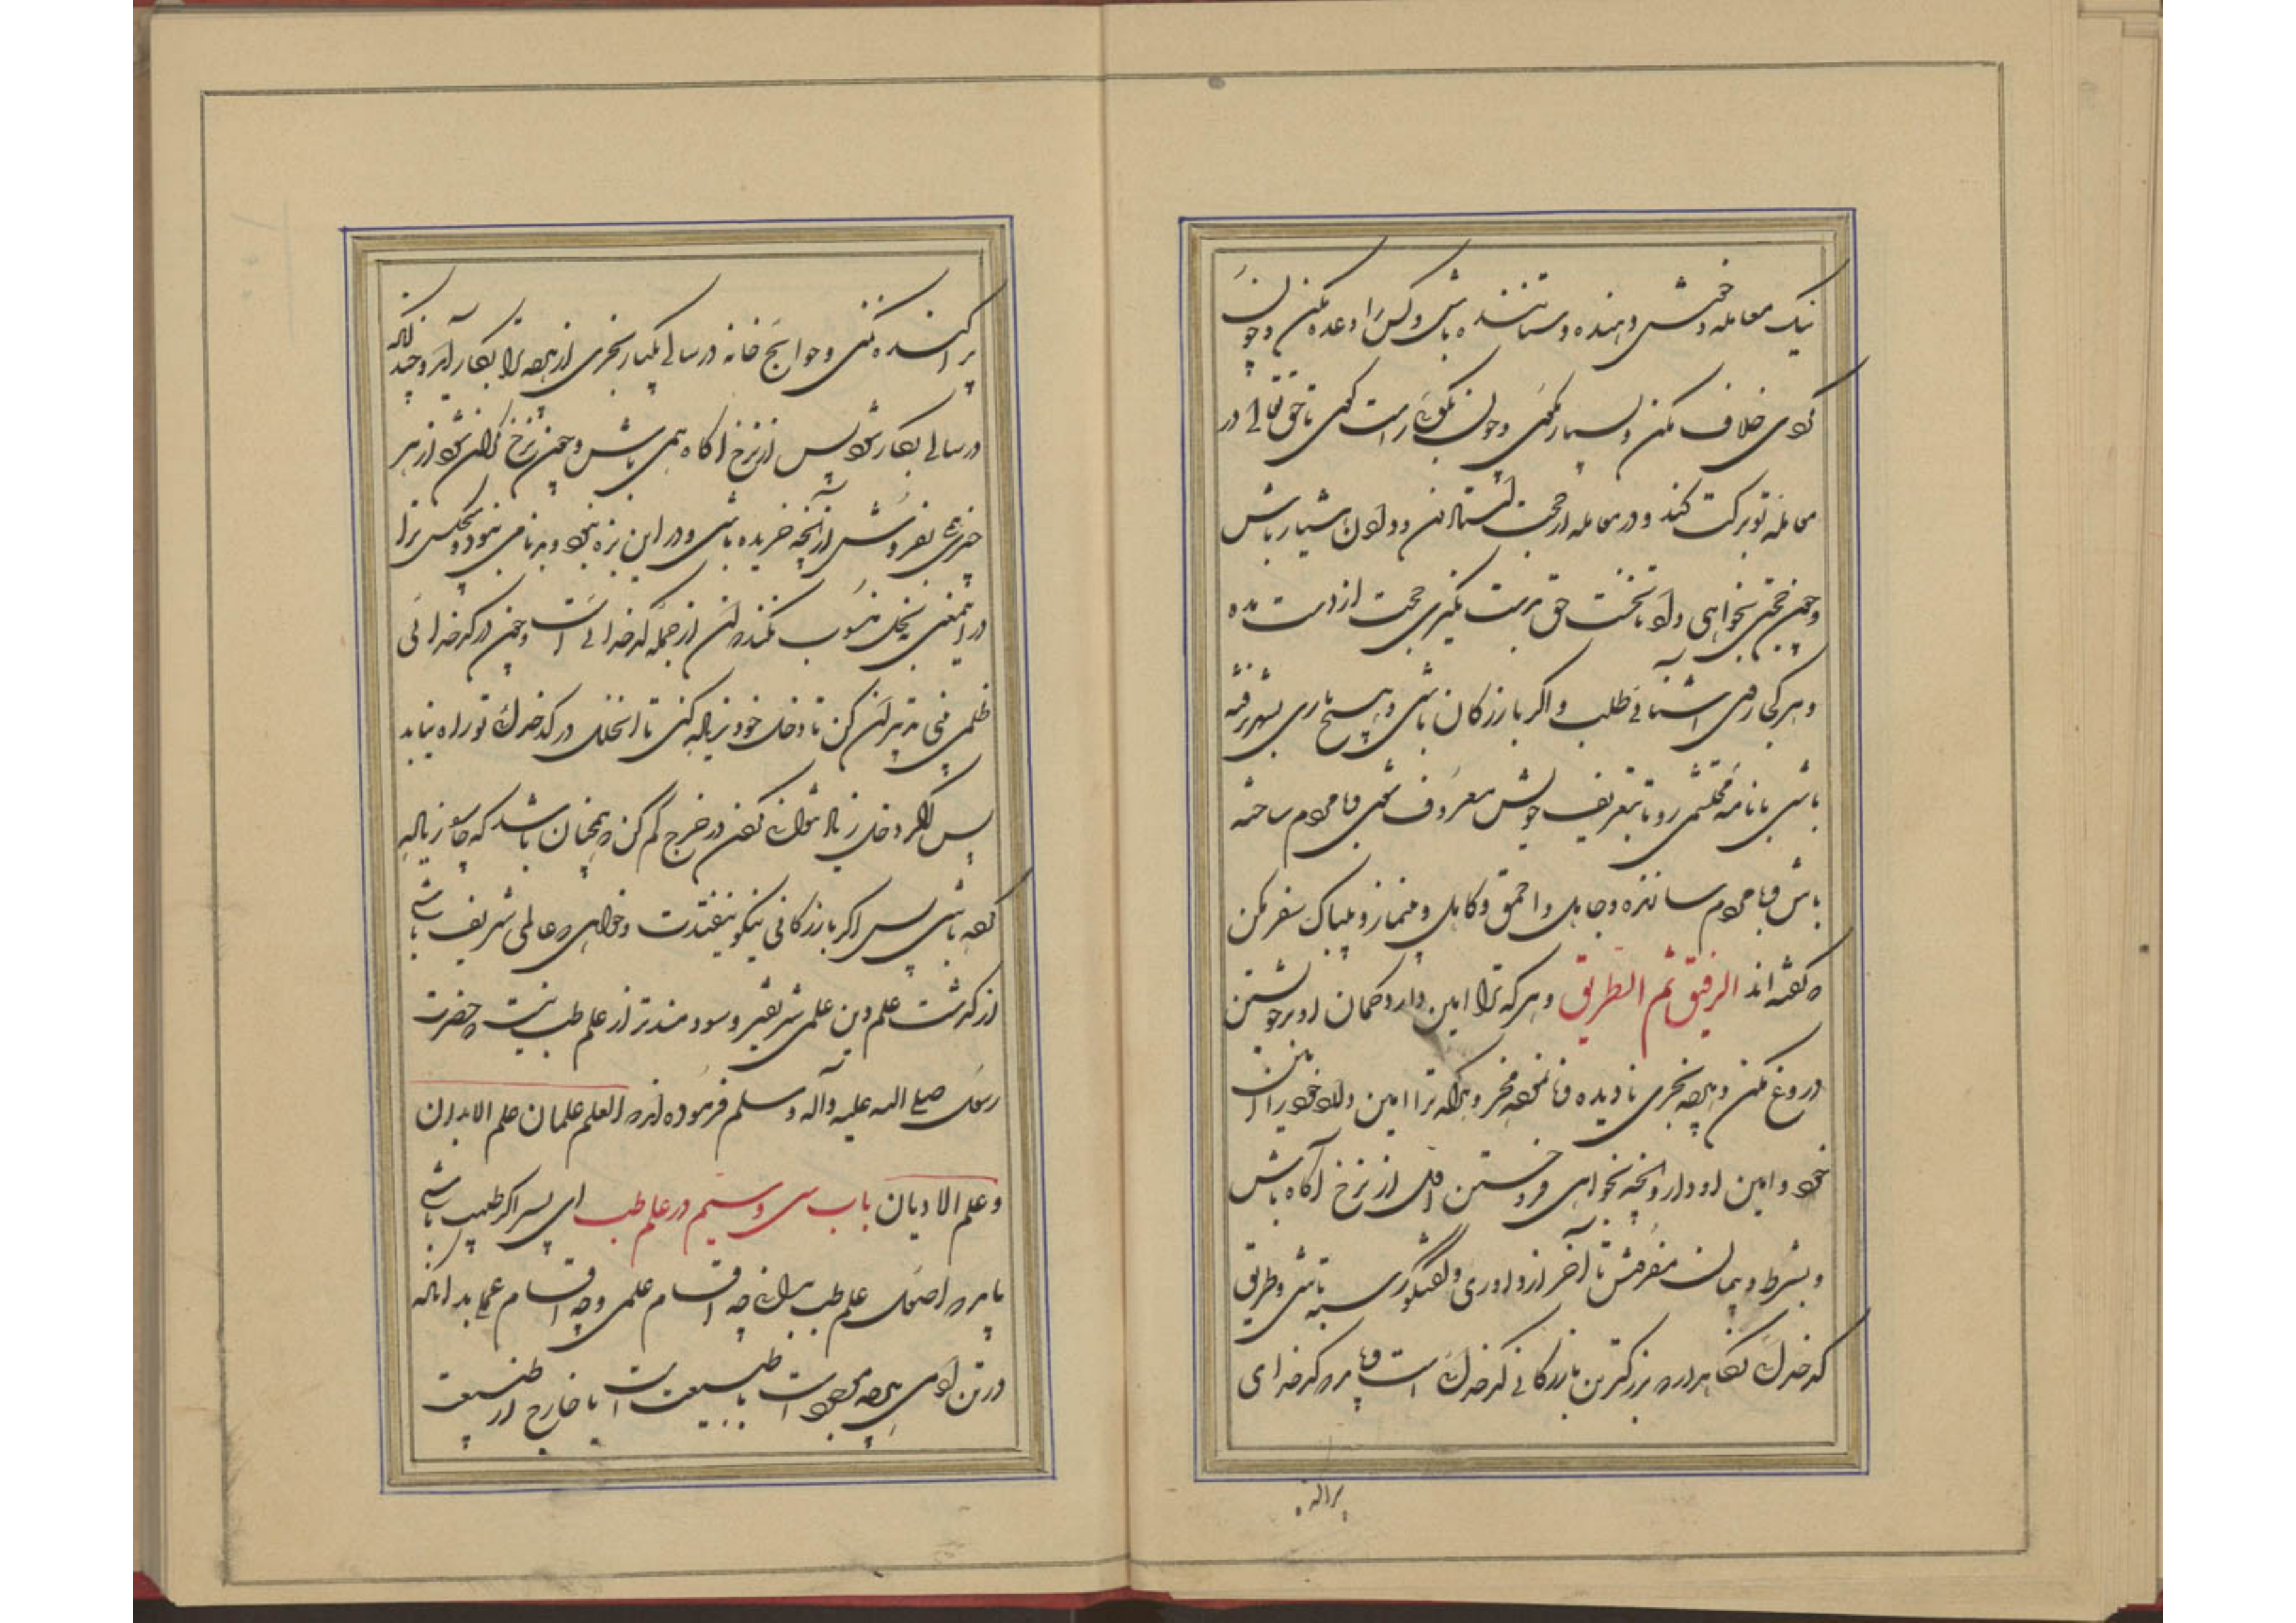 نیک معامله و خوش دهنده و ستاننده باشی و کس را وعده مکن و چون
کردی خلاف مکن و بسیار مگوی و چون بگویی راست گوی تا حق تعالی در
معامله تو برکت کند و در معامله از حجت استدن و دادن هشیار باش
و چون حجتی بخواهی داد تا نخست حق بدست نگیری حجت از دست مده
و هر کجا روی آشنایی طلب و اگر بازرگان باشی و هیچ باری بشهر نرفته
باشی با نامه محتشمی رو تا بتعریف خویش معروف شوی و با مردم ساخته
باش و با مردم نساخته و جاهل و احمق و کاهل و بینماز و بیباک سفر مکن
که گفته اند الرفیق ثم الطریق و هر که ترا امین دارد گمان او بر خویشتن
دروغ مکن و هر چه بخری نادیده و نانموده مخر و هر که ترا امین دارد خود را
خود و امین او دار و آنچه بخواهی فروختن اول از نرخ آگاه باش
و بشرط و پیمان بفروش تا آخر از داوری و گفتگوی رسته باشی و طریق
کدخدایی نگاهدار که بزرگترین بازرگانی کدخدایی است و باید که کدخدایی
پراکنده
پراکنده نکنی و حوایج خانه در سالی یکبار بخری از هر چه ترا بکار آید و چندانکه
در سالی بکار شود پس از نرخ آگاه همی باش و چون نرخ گران شود از هر
چیزی بفروش از آنچه خریده باشی و در این بزه نبود و بدنامی نبود و هیچکس ترا
در این معنی ببخل منسوب نکند که این از جمله کدخدایی است و چون در کدخدایی
خللی بینی تدبیر آن کن تا دخل خود زیاده کنی تا آن خلل در کدخدایی تو راه نیابد
پس اگر دخل زیاد نتوانی کردن در خرج کم کن که همچنان باشد که چاره زیاده
کرده باشی پس اگر بازرگانی نیکو نیفتدت و خواهی که عالمی شریف باشی
از گذشت علم دین علمی شریفتر و سودمندتر از علم طب نیست چه حضرت
رسول صلی الله علیه وآله وسلم فرموده اند که العلم علمان علم الابدان
وعلم الادیان باب سی و سیم در علم طب ای پسر اگر طبیب باشی
باید که اصول علم طب بدانی چه اقسام علمی و چه اقسام عملی بدانکه
در تن آدمی هر چه موجود است یا طبیعت است یا خارج از طبیعت